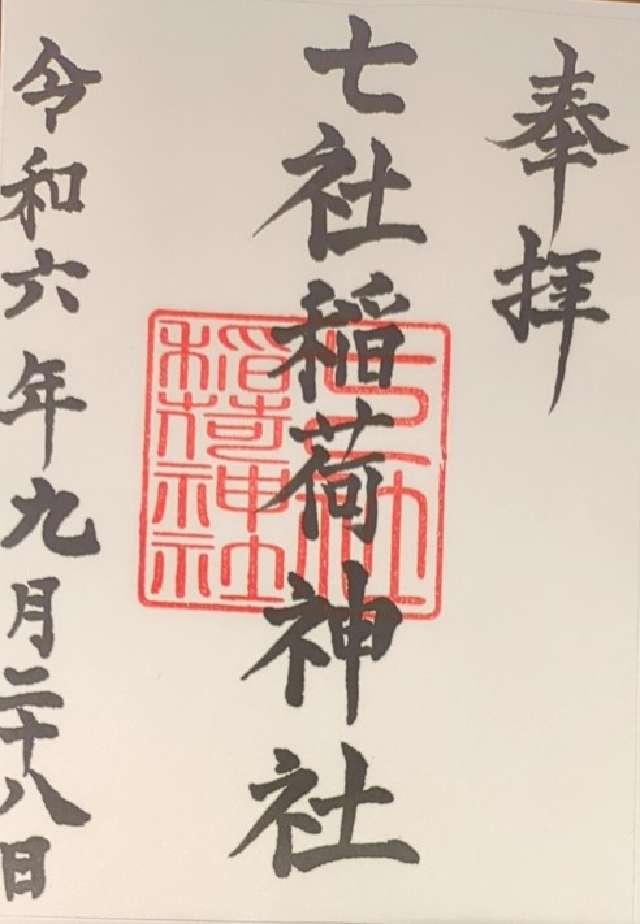 奉拝
七社稲荷神社
七社
稲荷神社
令和六年九月二十八日